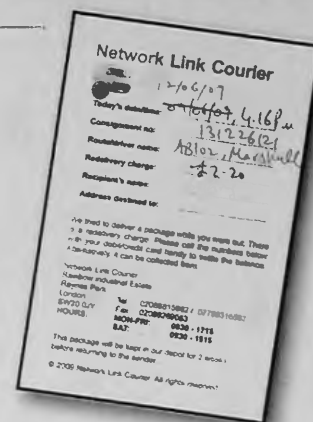 Network Link Courier
12/06/07
Today's date/time: 4.16pm
Consignment no: 131226121
Route/driver name: AB102, Marshall
Redelivery charge: £2-20
Recipient's name:
Address destined to:
We tried to deliver a package while you were out. There
is a redelivery charge. Please call the numbers below
with your debit/credit card handy to settle the balance
Alternatively, it can be collected from
Network Link Courier
Rainbow Industrial Estate
Raynes Park
London
SW20 0JY
Tel
Fax
HOURS: MON-FRI: 0930 - 1715
SAT: 0930 - 1515
This package will be kept in our depot for 2 weeks
before returning to the sender
© 2009 Network Link Courier. All rights reserved